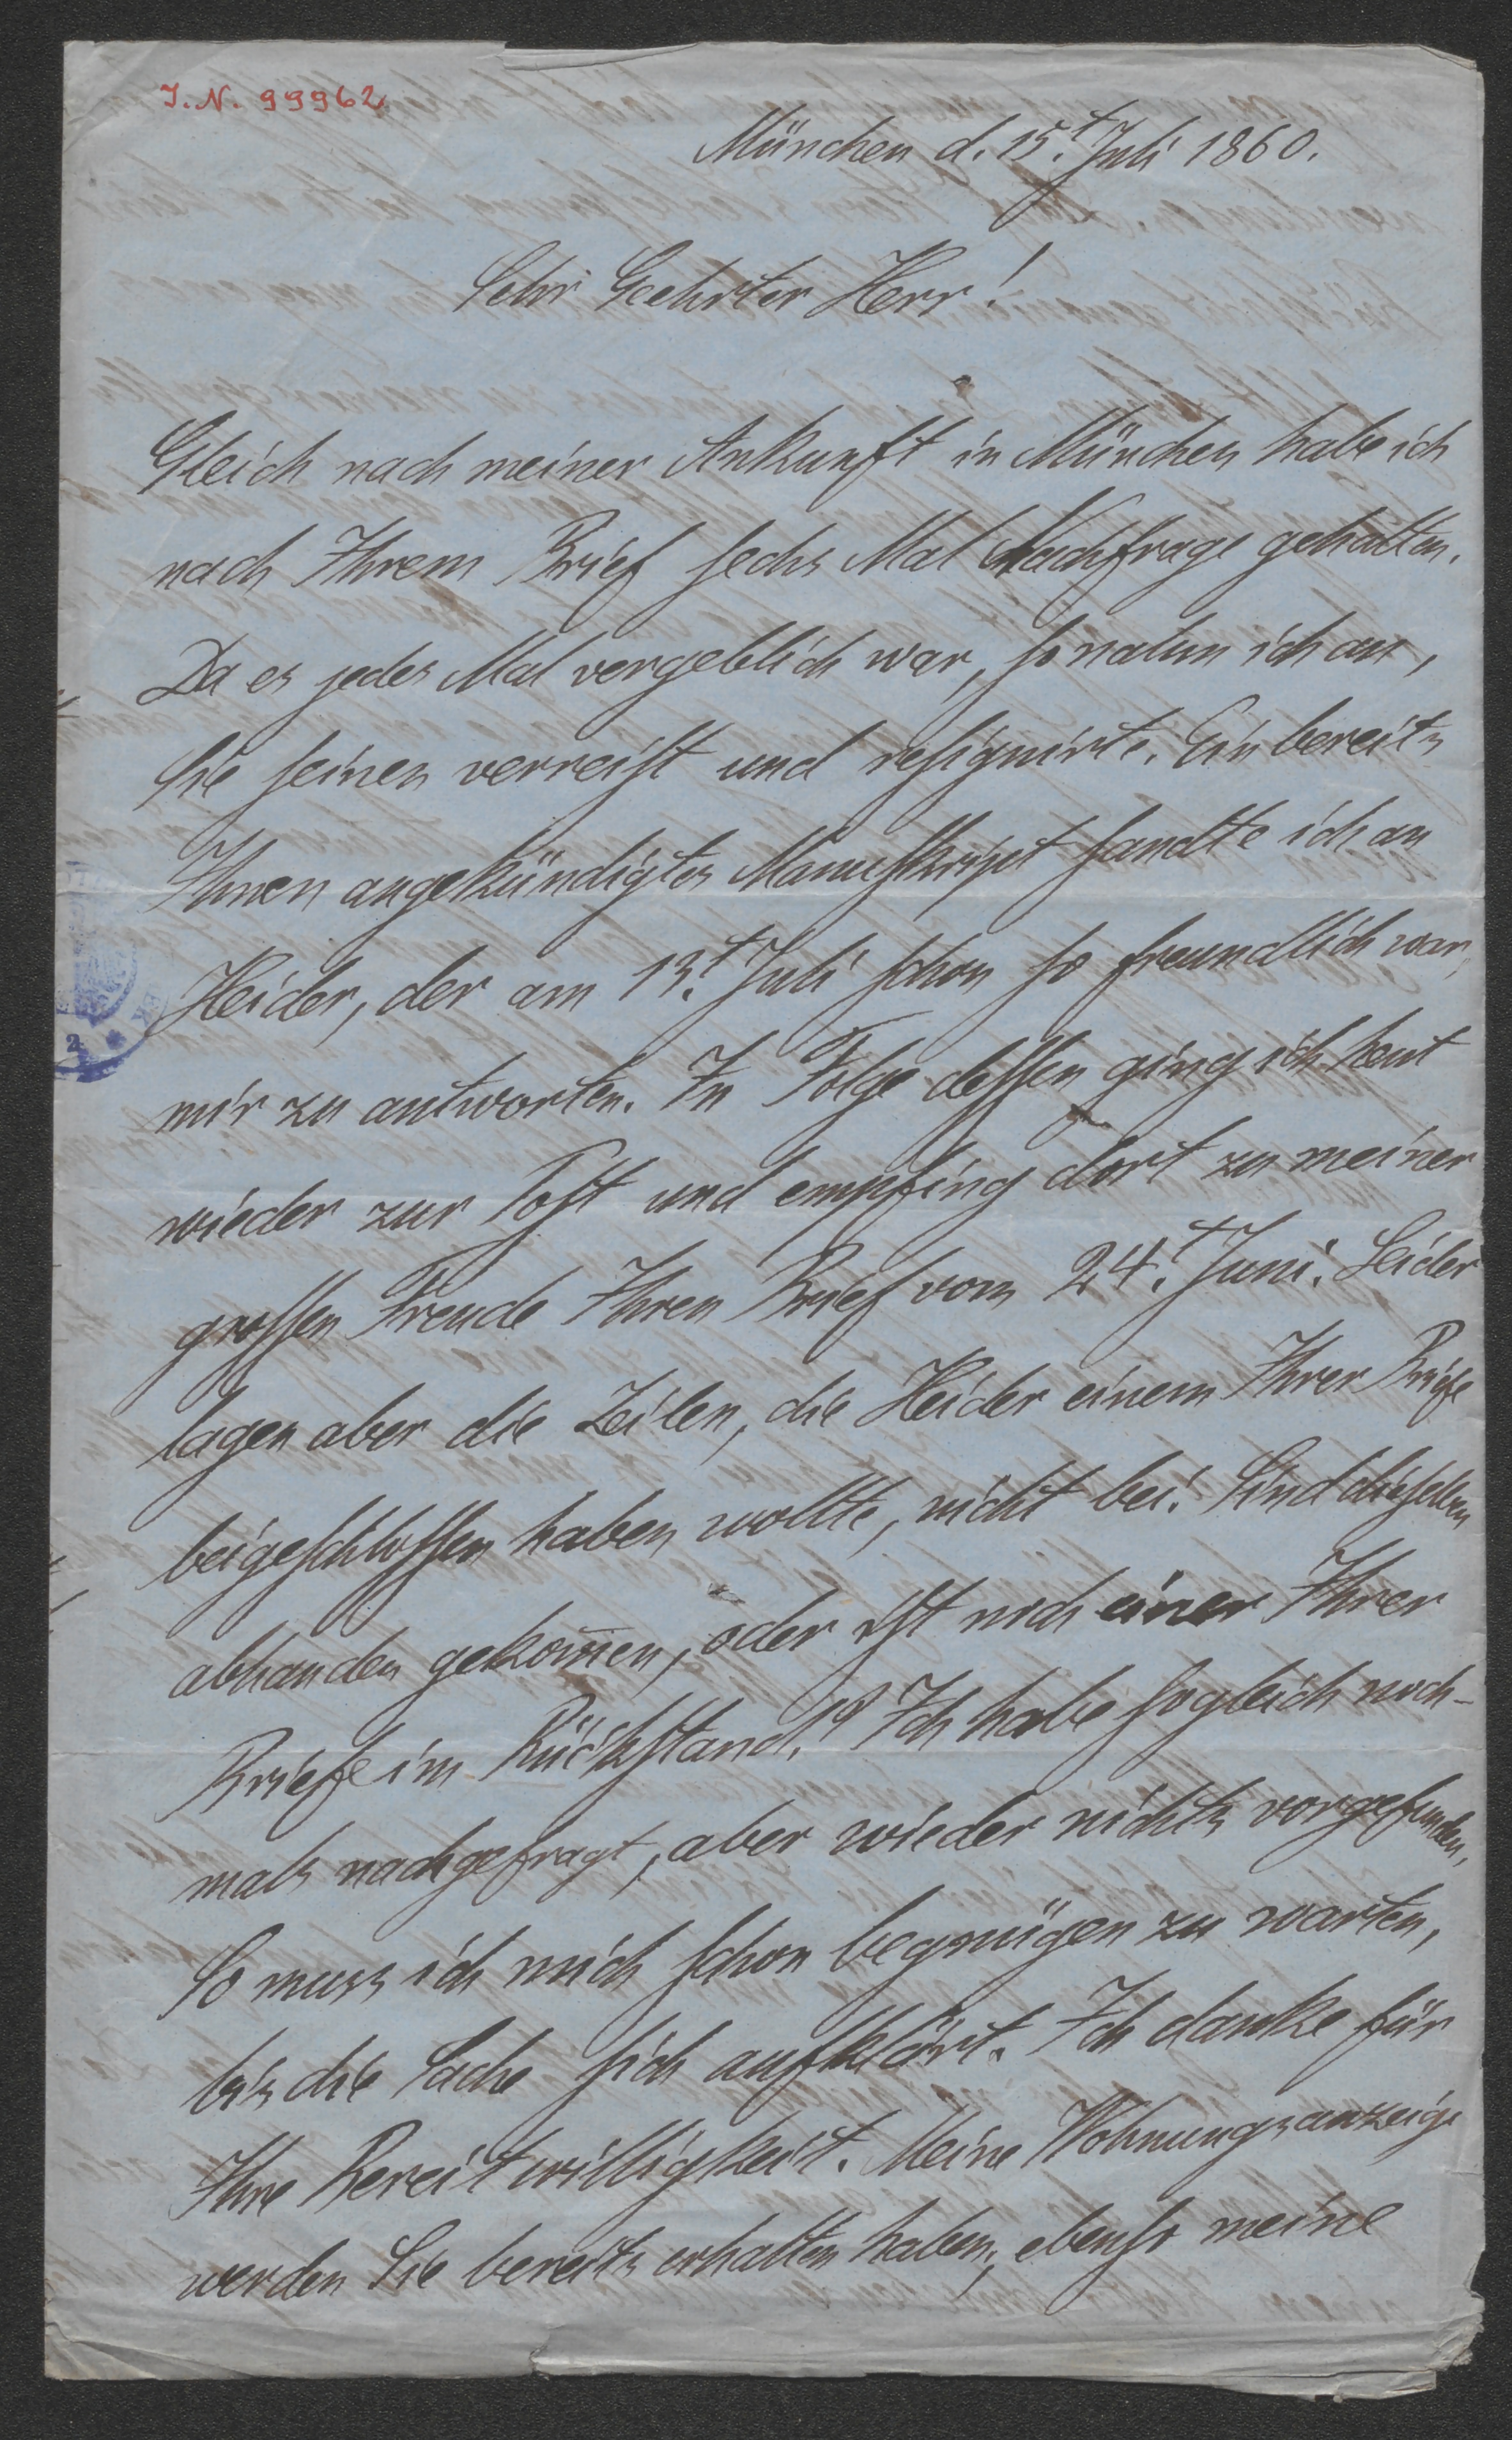 I. N. 99962
München d. 15.t Juli 1860.
Sehr Geehrter Herr!
Gleich nach meiner Ankunft in München habe ich
nach Ihrem Brief sechs Mal Nachfrage gehalten.
Da es jedes Mal vergeblich war, so nahm ich an,
Sie seinen verreist und resignirte. Ein bereits
Ihnen angekündigtes Manuskript sandte ich an
Heider, der am 13.t Juli schon so freundlich war,
mir zu antworten. In Folge dessen ging ich heut
wieder zur Post und empfing dort zu meiner
grossen Freude Ihren Brief vom 24.t Juni. Leider
lagen aber die Zeilen, die Heider einem Ihrer Briefe
beigeschlossen haben wollte, nicht bei. Sind dieselben
abhanden gekom̅en, oder ist noch einer Ihrer
Briefe im Rückstand? Ich habe sogleich noch-
mals nachgefragt, aber wieder nichts vorgefunden.
So muss ich mich schon begnügen zu warten,
bis die Sache sich aufklärt. Ich danke für
Ihre Bereitwilligkeit. Meine Wohnungsanzeige
werden Sie bereits erhalten haben, ebenso meine